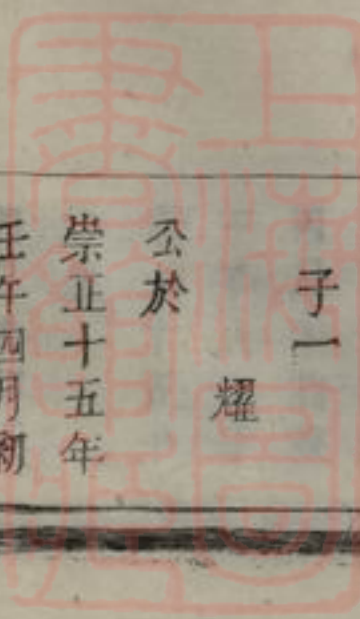 子一
耀
公於
崇正十五年
壬午四月初